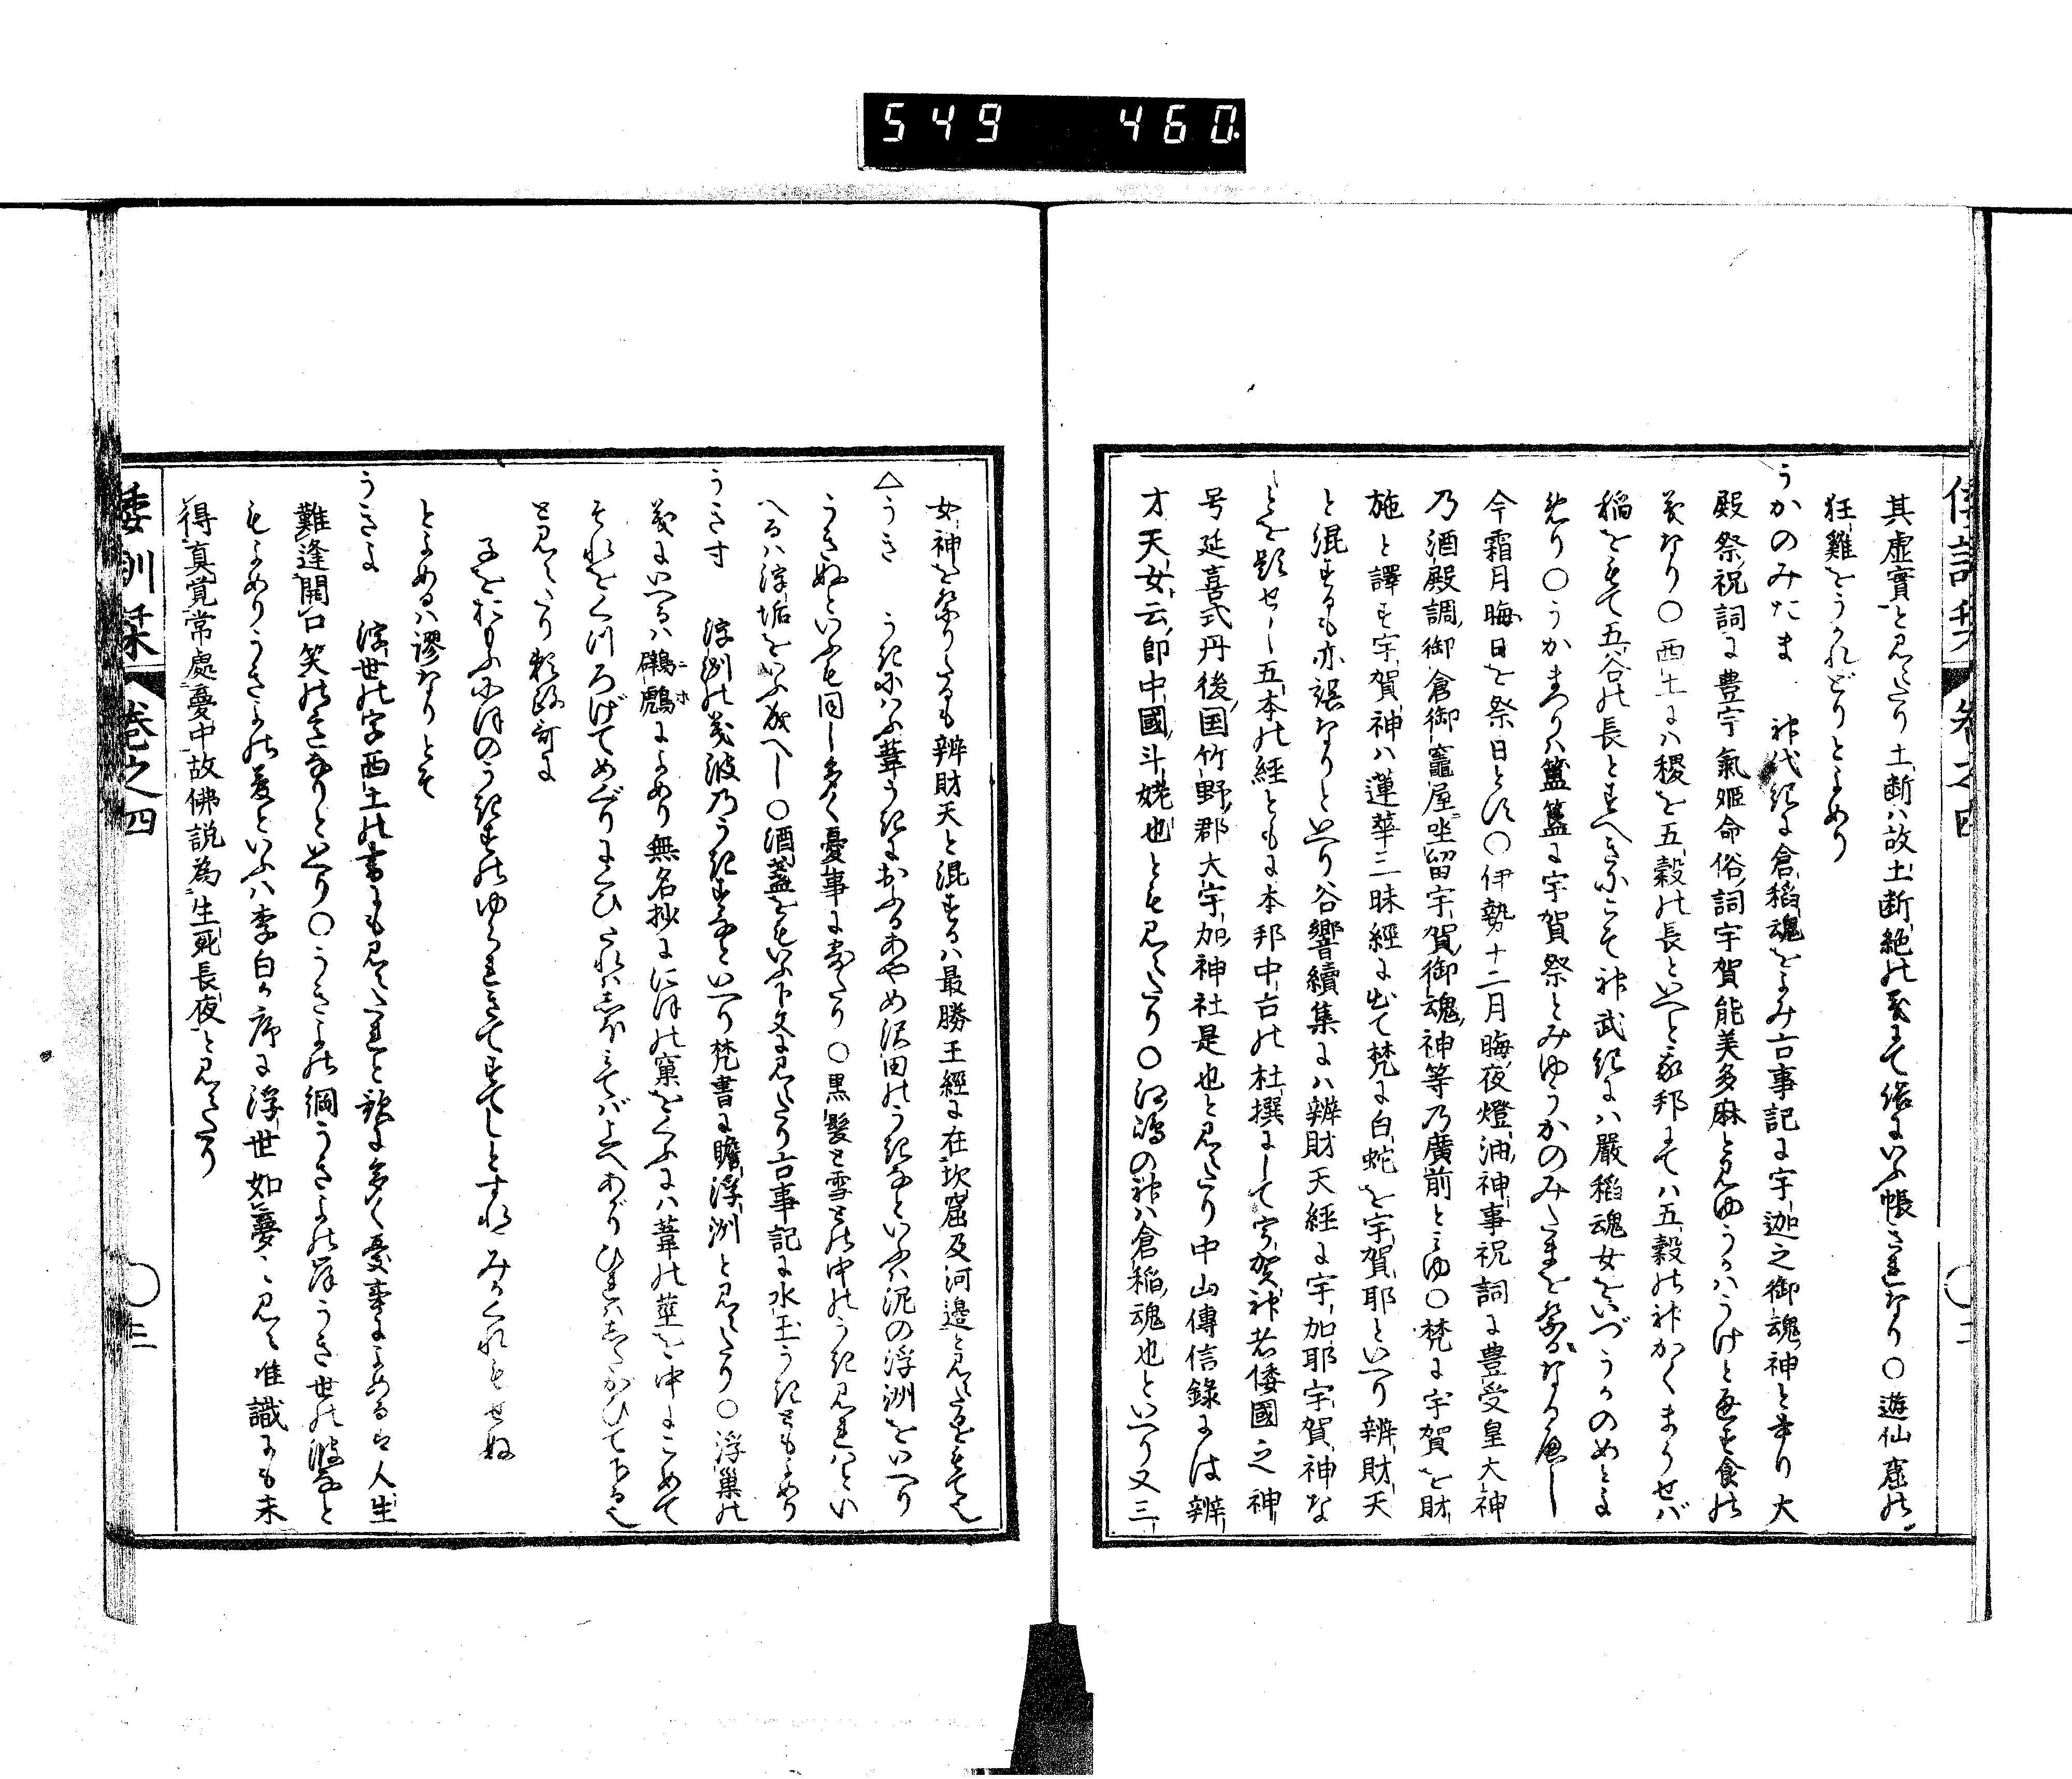 549 460
倭訓栞 巻之四 〇二
其虚實と見えたり土断ハ故土断絶の義にて俗にいふ帳されなり〇遊仙窟の
狂雞をうかれどりとよめり
うかのみたま 神代紀に倉稲魂をよみ古事記に宇迦之御魂神と
殿祭祝詞に豊宇氣姫命俗詞宇賀能美多麻と見ゆうかハうけと
義なり〇西土にハ稷を五穀の長といへと我邦にてハ五穀の神かくまうせバ
稲をもて五谷の長とすへきにこそ神武紀にハ嚴稻魂女をいづうかのめとよ
めり〇うかまつりハ簠簋に宇賀祭とみゆうかのみたまを祭るなるへし
今霜月晦日を祭日とす〇伊勢十二月晦夜燈油神事祝詞に豊受皇大神
乃酒殿調御倉御竈屋坐留宇賀御魂神等乃廣前とみゆ〇梵に宇賀を財
施と譯す宇賀神ハ蓮華三昧經に出て梵に白蛇を宇賀耶といへり辨財天
と混するも亦誤なりといへり谷響續集にハ辨財天經に宇加耶宇賀神な
とを題せし五本の経ともに本邦中古の杜撰にして宇賀神者倭國之神
号延喜式丹後国竹野郡大宇加神社是也と見えたり中山傳信錄には辨
才天女云即中國斗姥也とも見えたり〇江島の神ハ倉稲魂也といへり又三
女神を祭りたるも辨財天と混するハ最勝王經に在坎窟及河邊と見えたるをもて也
△うき うきにハふ葦うきにおふるあやめ沢田のうきなといふハ泥の浮洲をいへり
うきぬといふも同し多く憂事に寄たり〇黒髪と雪との中のうき見れハとい
へるハ浮垢をいふ成へし〇酒盞をもいふ下文に見えたり古事記に水玉うきともよめり
うきす 浮洲の義波乃うきすなといへり梵書に瞻浮洲と見えたり〇浮巣の
義にいへるハ鸊鷉ニホによめり無名抄ににほの窠をくふにハ葦の莖を中にこめて
それをくつろげてめぐりにくひたれハしほみてバ上へあがりひれハしたがひて下る也
と見えたり
子をおもふにほのうきすのゆられきてすてしとすれやみかくれもせぬ
とよめるハ謬なりとそ
うきよ 浮世の字西土の書にも見えたれと歌に多く憂事によめるは人生
難逢開口笑の意なりといへり〇うきよの綱うきよの岸うき世の波なと
もよめりうきよの夢といふハ李白か序に浮世如夢と見え唯識にも未
得真覚常處夢中故佛説為生死長夜と見えたり
倭訓栞 巻之四 〇三